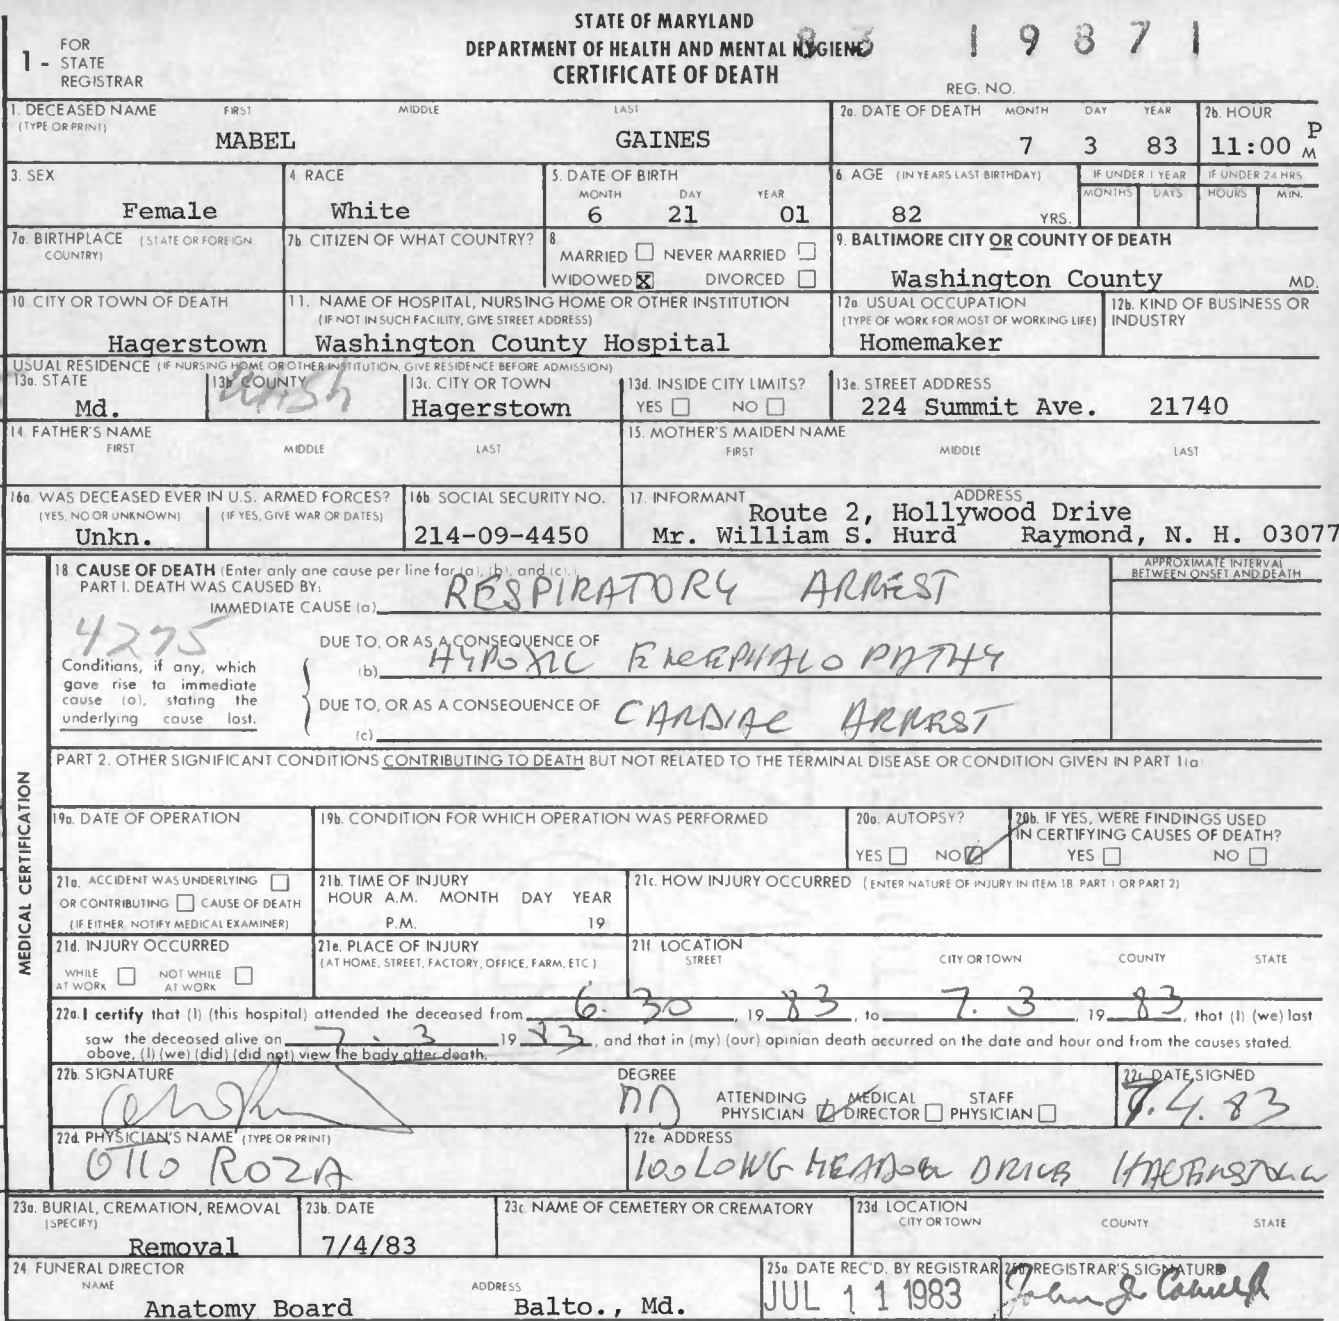 STATE OF MARYLAND
DEPARTMENT OF HEALTH AND MENTAL HYGIENE
CERTIFICATE OF DEATH
83 19871
1 - FOR STATE REGISTRAR
REG. NO.
1. DECEASED NAME (TYPE OR PRINT) FIRST MIDDLE LAST
MABEL GAINES
2a. DATE OF DEATH MONTH DAY YEAR
7 3 83
2b. HOUR
11:00 P M
3. SEX
Female
4 RACE
White
5. DATE OF BIRTH MONTH DAY YEAR
6 21 01
6 AGE (IN YEARS LAST BIRTHDAY)
82 YRS.
IF UNDER 1 YEAR MONTHS DAYS
IF UNDER 24 HRS HOURS MIN.
7a. BIRTHPLACE (STATE OR FOREIGN COUNTRY)
7b CITIZEN OF WHAT COUNTRY?
8 MARRIED NEVER MARRIED
WIDOWED X DIVORCED
9. BALTIMORE CITY OR COUNTY OF DEATH
Washington County MD.
10 CITY OR TOWN OF DEATH
Hagerstown
11. NAME OF HOSPITAL, NURSING HOME OR OTHER INSTITUTION
(IF NOT IN SUCH FACILITY, GIVE STREET ADDRESS)
Washington County Hospital
12a USUAL OCCUPATION
(TYPE OF WORK FOR MOST OF WORKING LIFE)
Homemaker
12b. KIND OF BUSINESS OR INDUSTRY
USUAL RESIDENCE (IF NURSING HOME OR OTHER INSTITUTION, GIVE RESIDENCE BEFORE ADMISSION)
13a. STATE
Md.
13b COUNTY
Wash
13c. CITY OR TOWN
Hagerstown
13d. INSIDE CITY LIMITS?
YES NO
13e. STREET ADDRESS
224 Summit Ave. 21740
14 FATHER'S NAME
FIRST MIDDLE LAST
15. MOTHER'S MAIDEN NAME
FIRST MIDDLE LAST
16a WAS DECEASED EVER IN U.S. ARMED FORCES?
(YES, NO OR UNKNOWN) (IF YES, GIVE WAR OR DATES)
Unkn.
16b SOCIAL SECURITY NO.
214-09-4450
17. INFORMANT ADDRESS
Route 2, Hollywood Drive
Mr. William S. Hurd Raymond, N. H. 03077
MEDICAL CERTIFICATION
18 CAUSE OF DEATH (Enter only one cause per line for (a), (b), and (c).)
PART I. DEATH WAS CAUSED BY:
IMMEDIATE CAUSE (a) RESPIRATORY ARREST
APPROXIMATE INTERVAL BETWEEN ONSET AND DEATH
4275
Conditions, if any, which
gave rise to immediate
cause (a), stating the
underlying cause last.
DUE TO, OR AS A CONSEQUENCE OF
(b) HYPOXIC ENCEPHALOPATHY
DUE TO, OR AS A CONSEQUENCE OF
(c) CARDIAC ARREST
PART 2. OTHER SIGNIFICANT CONDITIONS CONTRIBUTING TO DEATH BUT NOT RELATED TO THE TERMINAL DISEASE OR CONDITION GIVEN IN PART 1(a)
19a. DATE OF OPERATION
19b. CONDITION FOR WHICH OPERATION WAS PERFORMED
20a. AUTOPSY?
YES NO
20b. IF YES, WERE FINDINGS USED
IN CERTIFYING CAUSES OF DEATH?
YES NO
21a. ACCIDENT WAS UNDERLYING
OR CONTRIBUTING CAUSE OF DEATH
(IF EITHER, NOTIFY MEDICAL EXAMINER)
21b. TIME OF INJURY
HOUR A.M. MONTH DAY YEAR
P.M. 19
21c. HOW INJURY OCCURRED (ENTER NATURE OF INJURY IN ITEM 18, PART 1 OR PART 2)
21d. INJURY OCCURRED
WHILE AT WORK NOT WHILE AT WORK
21e. PLACE OF INJURY
(AT HOME, STREET, FACTORY, OFFICE, FARM, ETC.)
21f LOCATION
STREET CITY OR TOWN COUNTY STATE
22a. I certify that (I) (this hospital) attended the deceased from 6. 30, 19 83, to 7. 3, 19 83, that (I) (we) last
saw the deceased alive on 7. 3 19 83, and that in (my) (our) opinion death occurred on the date and hour and from the causes stated.
above, (I) (we) (did) (did not) view the body after death.
22b. SIGNATURE
DEGREE
MD
ATTENDING PHYSICIAN MEDICAL DIRECTOR STAFF PHYSICIAN
22c. DATE SIGNED
7.4.83
22d. PHYSICIAN'S NAME (TYPE OR PRINT)
OTTO ROZA
22e ADDRESS
100 LONG MEADOW DRIVE HAGERSTOWN
23a. BURIAL, CREMATION, REMOVAL
(SPECIFY)
Removal
23b. DATE
7/4/83
23c NAME OF CEMETERY OR CREMATORY
23d LOCATION
CITY OR TOWN COUNTY STATE
24 FUNERAL DIRECTOR
NAME ADDRESS
Anatomy Board Balto., Md.
25a DATE REC'D. BY REGISTRAR
JUL 11 1983
25b REGISTRAR'S SIGNATURE